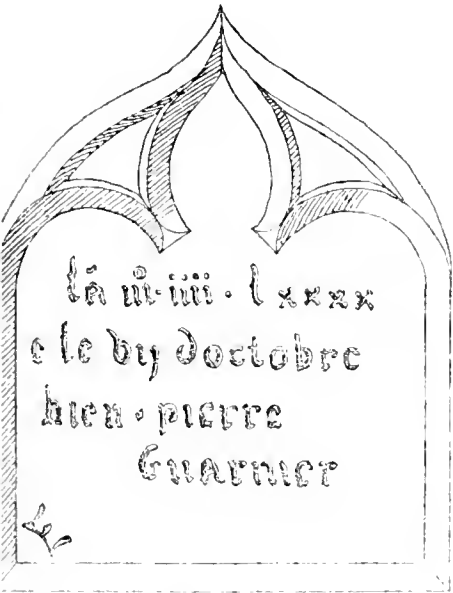 lã m̊·iiii· l xxxx
e le vij doctobre
hien · pierre
Guarnier